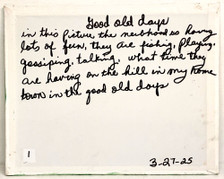 Good old days
in this picture the newshonds having
lots of fun, they are fishing, playing,
gossiping, talking, what time they
are having on the hill in my home
town in the good old days
1
3-27-25